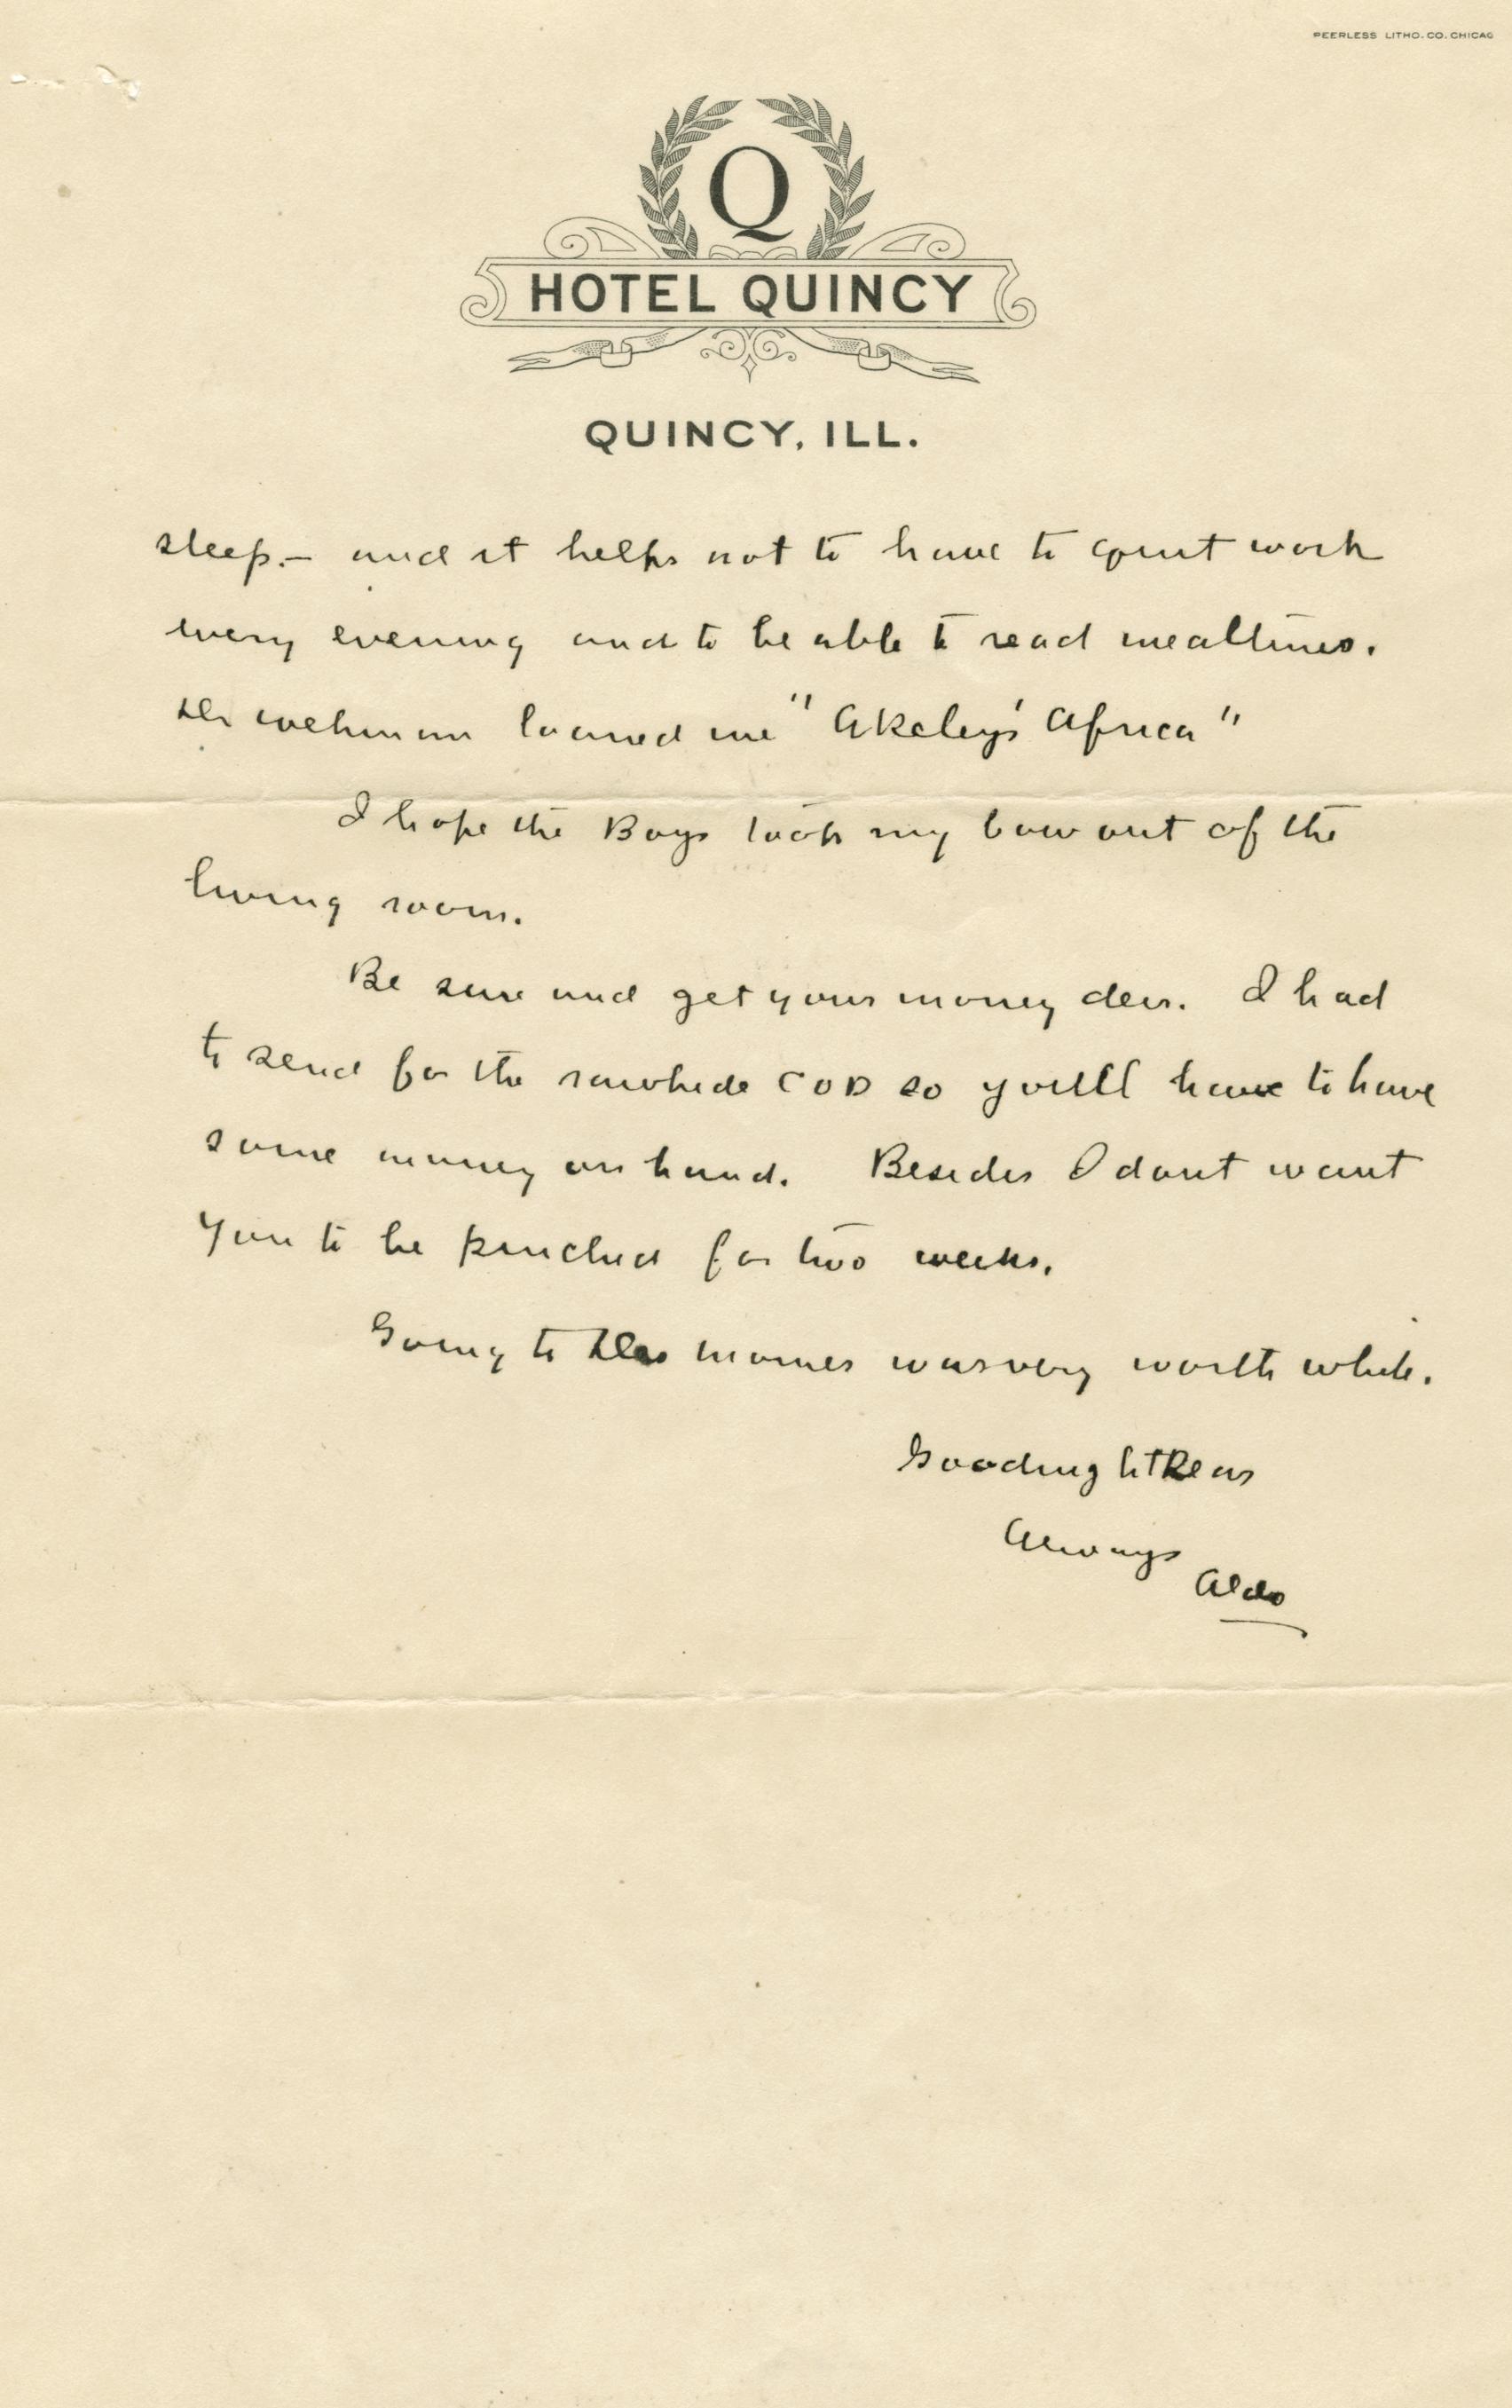 PEERLESS LITHO. CO. CHICAG
Q
HOTEL QUINCY
QUINCY, ILL.
sleep. — and it helps not to have to quit work
every evening and to be able to read mealtimes.
loaned me "Akeley's Africa"
I hope the Boys took my bow out of the
living room.
Be sure and get your money dear. I had
to send for the rawhide COD so you'll have to have
some money on hand. Besides I dont want
you to be pinched for two weeks.
Going to Des Moines was very worth while.
Goodnight Dear
Always
Aldo